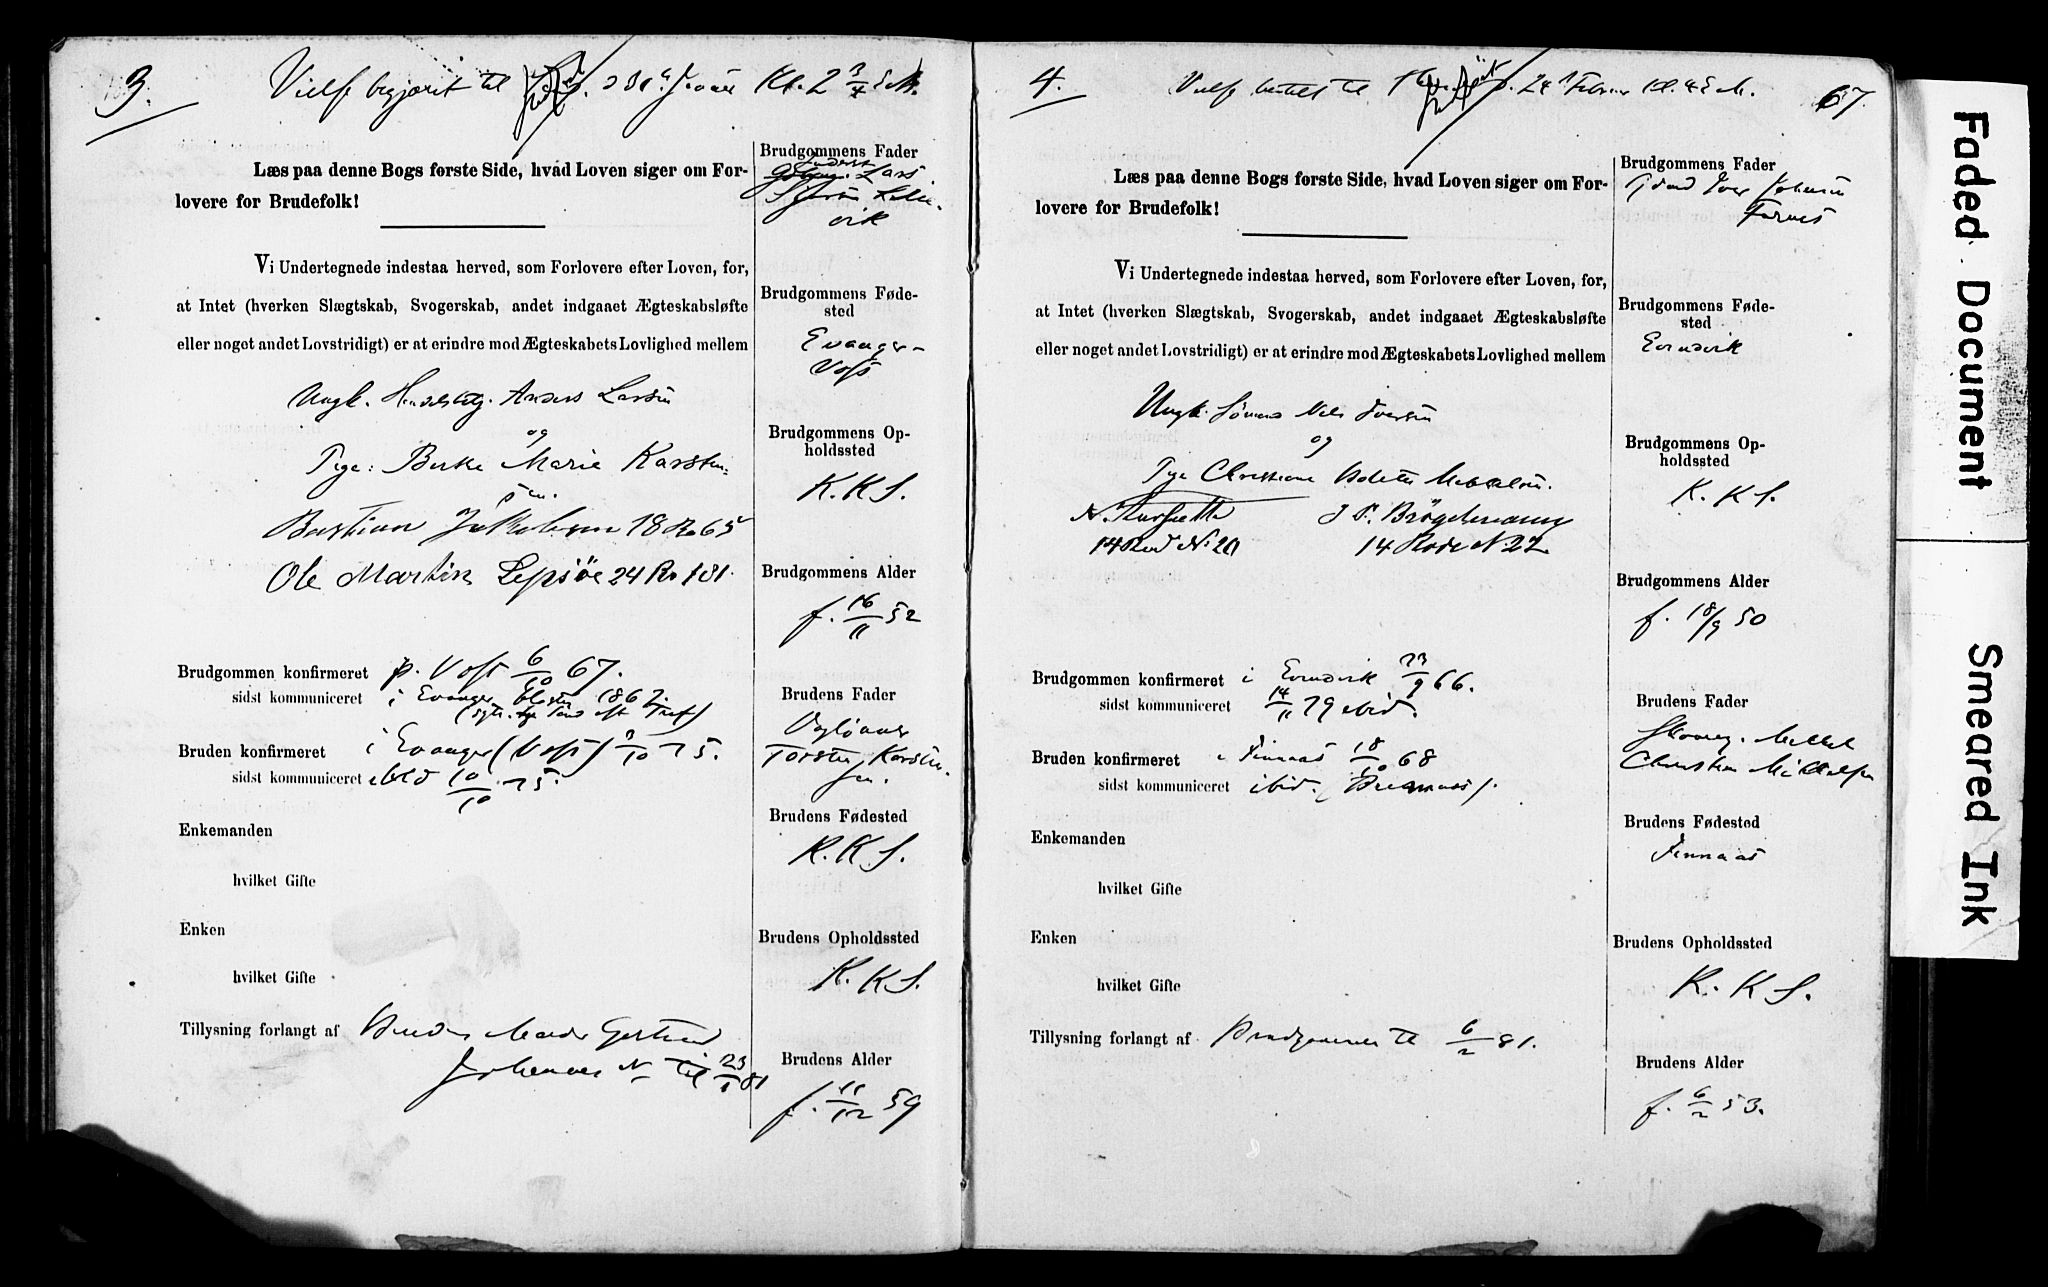 3. Vielse begjæret til d. 31te Januar Kl. 2 3/4 Em.
Læs paa denne Bogs første Side, hvad Loven siger om For-
lovere for Brudefolk!
Vi Undertegnede indestaa herved, som Forlovere efter Loven, for,
at Intet (hverken Slægtskab, Svogerskab, andet indgaaet Ægteskabsløfte
eller noget andet Lovstridigt) er at erindre mod Ægteskabets Lovlighed mellem
Ungk. Anders Larsen
og
Pige: Marie Karsten-
sen.
Bastian Jakobsen 18 Ro 65
Ole Martin Lepsöe 24 Ro 181.
Brudgommen konfirmeret p. Voss 6/10 67.
sidst kommuniceret i Evanger 1867.
Bruden konfirmeret i Evanger (Voss) 3/10 75.
sidst kommuniceret ibid 10/10 75.
Enkemanden
hvilket Gifte
Enken
hvilket Gifte
Tillysning forlangt af Brudens Moder Gertrud
Johannes til 23/1 81
Brudgommens Fader
Lars
Brudgommens Føde-
sted
Evanger-
Voss
Brudgommens Op-
holdssted
K. K S.
Brudgommens Alder
f. 16/11 52
Brudens Fader
Torsten Karsten-
sen.
Brudens Fødested
K. K S.
Brudens Opholdssted
K. K S.
Brudens Alder
f. 11/12 59
4. Vielse til d. 24 Februar Kl. 4 E M. 67.
Læs paa denne Bogs første Side, hvad Loven siger om For-
lovere for Brudefolk!
Vi Undertegnede indestaa herved, som Forlovere efter Loven, for,
at Intet (hverken Slægtskab, Svogerskab, andet indgaaet Ægteskabsløfte
eller noget andet Lovstridigt) er at erindre mod Ægteskabets Lovlighed mellem
Ungk. Sömand Nils Iversen
og
Pige Christiane
14 Rod No 20 14 Rode N 22
Brudgommen konfirmeret i Evindvik 23/9 66.
sidst kommuniceret 14/11 79 ibid.
Bruden konfirmeret i Finnaas 18/10 68
sidst kommuniceret ibid.
Enkemanden
hvilket Gifte
Enken
hvilket Gifte
Tillysning forlangt af Brudgommen til 6/2 81.
Brudgommens Fader
Iver Johnsen
Brudgommens Føde-
sted
Evindvik
Brudgommens Op-
holdssted
K. K S.
Brudgommens Alder
f. 18/9 50
Brudens Fader
Mikkel
Christian Mikkelsen
Brudens Fødested
Finnaas
Brudens Opholdssted
K. K S.
Brudens Alder
f. 6/2 53.
Faded Document
Smeared Ink